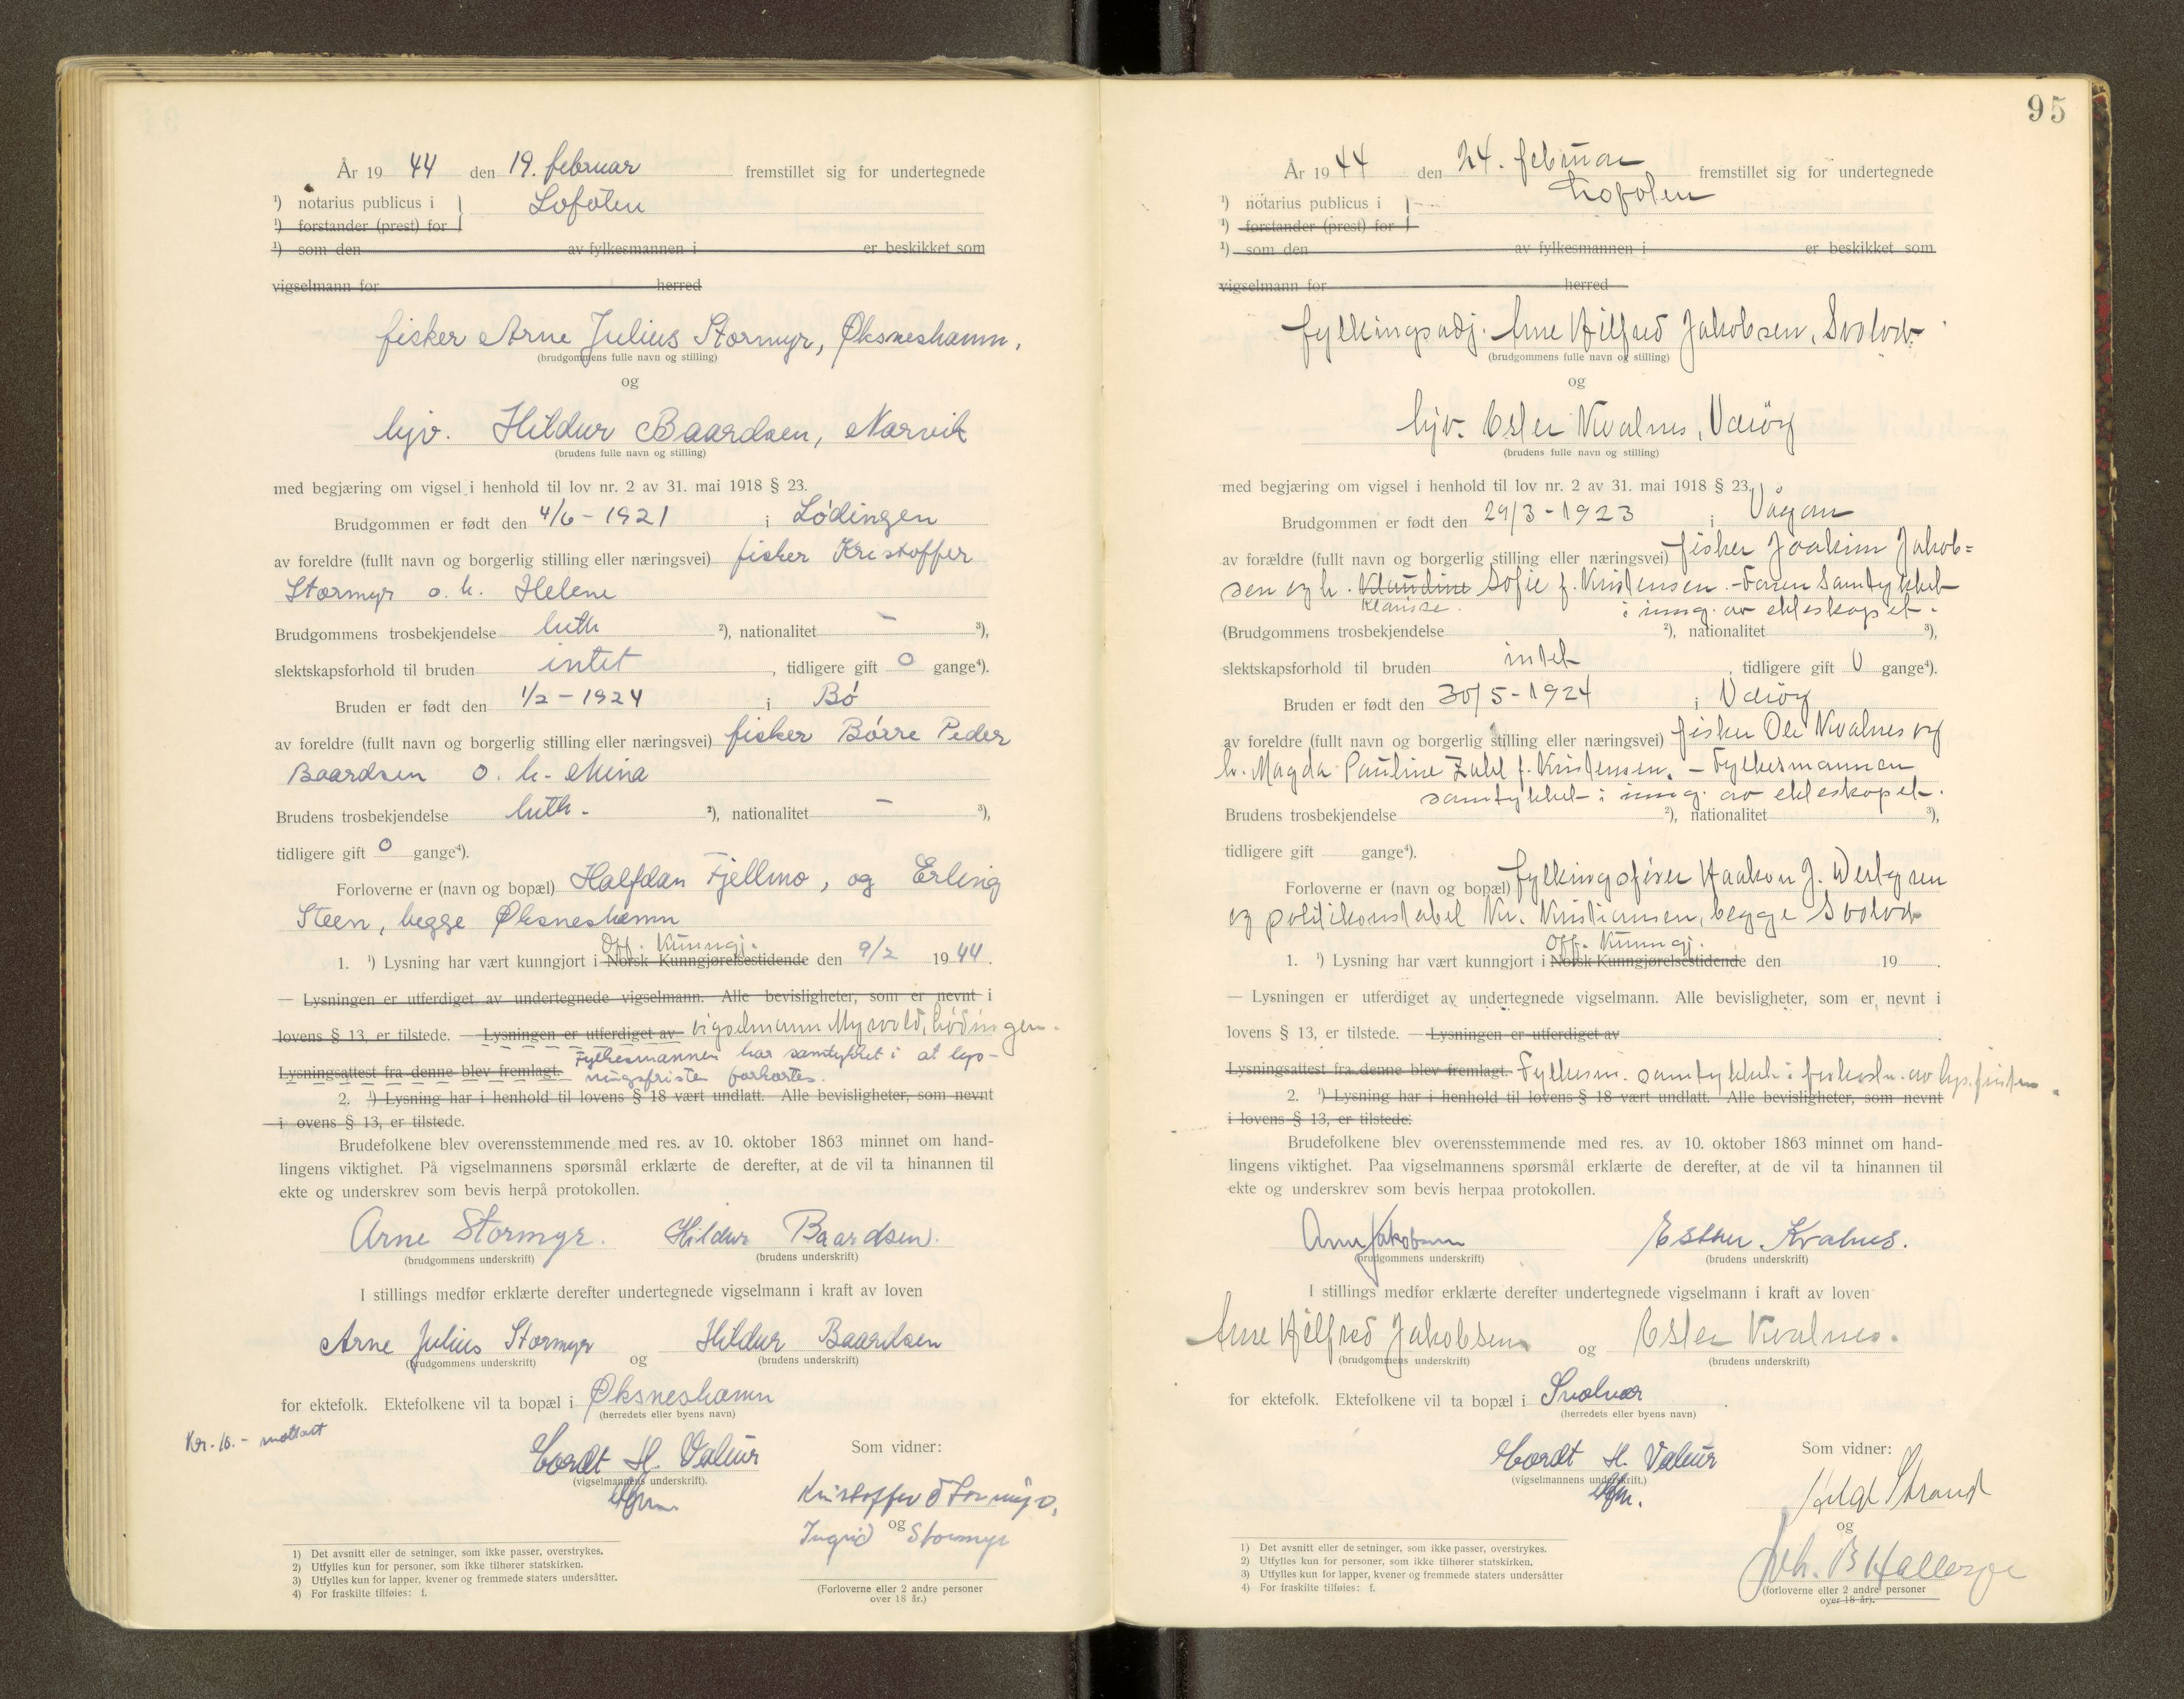 År 19 44 den 19. februar fremstillet sig for undertegnede
¹) notarius publicus i } Lofoten
¹) forstander (prest) for
¹) som den av fylkesmannen i er beskikket som
vigselmann for herred
fisker Arne Julius Stormyr, Øksneshamn,
(brudgommens fulle navn og stilling)
og
hjv. Hildur Baardsen, Narvik
(brudens fulle navn og stilling)
med begjæring om vigsel i henhold til lov nr. 2 av 31. mai 1918 § 23.
Brudgommen er født den 4/6 - 1921 i Lødingen
av foreldre (fullt navn og borgerlig stilling eller næringsvei) fisker Kristoffer
Stormyr o. h. Helene
Brudgommens trosbekjendelse luth ²), nationalitet - ³),
slektskapsforhold til bruden intet, tidligere gift 0 gange⁴).
Bruden er født den 1/2 - 1924 i Bø
av foreldre (fullt navn og borgerlig stilling eller næringsvei) fisker Børre Peder
Baardsen o. h. Mina
Brudens trosbekjendelse luth. ²), nationalitet - ³),
tidligere gift 0 gange⁴).
Forloverne er (navn og bopæl) Halfdan Fjellmo, og Erling
Steen, begge Øksneshamn
Off. Kunngj.
1. ¹) Lysning har vært kunngjort i Norsk Kunngjørelsestidende den 9/2 19 44.
— Lysningen er utferdiget av undertegnede vigselmann. Alle bevisligheter, som er nevnt i
lovens § 13, er tilstede. — Lysningen er utferdiget av vigselmann Myrvold, Lødingen.
Fylkesmannen har samtykket i at lys-
Lysningsattest fra denne blev fremlagt. ningsfristen forkortes.
2. ¹) Lysning har i henhold til lovens § 18 vært undlatt. Alle bevisligheter, som nevnt
i ovens § 13, er tilstede.
Brudefolkene blev overensstemmende med res. av 10. oktober 1863 minnet om hand-
lingens viktighet. På vigselmannens spørsmål erklærte de derefter, at de vil ta hinannen til
ekte og underskrev som bevis herpå protokollen.
Arne Stormyr. Hildur Baardsen.
(brudgommens underskrift) (brudens underskrift)
I stillings medfør erklærte derefter undertegnede vigselmann i kraft av loven
Arne Julius Stormyr og Hildur Baardsen
(brudgommens underskrift) (brudens underskrift)
for ektefolk. Ektefolkene vil ta bopæl i Øksneshamn
(herredets eller byens navn)
Kr. 10.- mottatt
Cordt H. Valeur
(vigselmannens underskrift).
Som vidner:
Kristoffer Stormyr,
og
Ingrid Stormyr
(Forloverne eller 2 andre personer
over 18 år.)
1) Det avsnitt eller de setninger, som ikke passer, overstrykes.
2) Utfylles kun for personer, som ikke tilhører statskirken.
3) Utfylles kun for lapper, kvener og fremmede staters undersåtter.
4) For fraskilte tilføies: f.
95
År 19 44 den 24. februar fremstillet sig for undertegnede
¹) notarius publicus i } Lofoten
¹) forstander (prest) for
¹) som den av fylkesmannen i er beskikket som
vigselmann for herred
fylkingsadj. Arne Hilfred Jakobsen, Svolvær
(brudgommens fulle navn og stilling)
og
hjv. Ester Kvalnes, Værøy
(brudens fulle navn og stilling)
med begjæring om vigsel i henhold til lov nr. 2 av 31. mai 1918 § 23.
Brudgommen er født den 29/3 - 1923 i Vågan
av forældre (fullt navn og borgerlig stilling eller næringsvei) fisker Joakim Jakob=
sen og h. Klaudine Sofie f. Kristensen. - Faren samtykket
Klarisse. i inng. av ekteskapet.
(Brudgommens trosbekjendelse ²), nationalitet ³),
slektskapsforhold til bruden intet, tidligere gift 0 gange⁴).
Bruden er født den 30/5 - 1924 i Værøy
av foreldre (fullt navn og borgerlig stilling eller næringsvei) fisker Ole Kvalnes og
h. Magda Pauline Zahl f. Kristensen. - Fylkesmannen
samtykket i inng. av ekteskapet.
Brudens trosbekjendelse ²), nationalitet ³),
tidligere gift gange⁴).
Forloverne er (navn og bopæl) fylkingsfører Haakon J.
og politikonstabel Kr. Kristiansen, begge Svolvær
Off. Kunngj.
1. ¹) Lysning har vært kunngjort i Norsk Kunngjørelsestidende den 19 .
— Lysningen er utferdiget av undertegnede vigselmann. Alle bevisligheter, som er nevnt i
lovens § 13, er tilstede. — Lysningen er utferdiget av
Lysningsattest fra denne blev fremlagt. Fylkesm. samtykket i forkortn. av lys.fristen.
2. ¹) Lysning har i henhold til lovens § 18 vært undlatt. Alle bevisligheter, som nevnt
i lovens § 13, er tilstede.
Brudefolkene blev overensstemmende med res. av 10. oktober 1863 minnet om hand-
lingens viktighet. Paa vigselmannens spørsmål erklærte de derefter, at de vil ta hinannen til
ekte og underskrev som bevis herpaa protokollen.
Arne Jakobsen Esther Kvalnes.
(brudgommens underskrift) (brudens underskrift)
I stillings medfør erklærte derefter undertegnede vigselmann i kraft av loven
Arne Hilfred Jakobsen og Ester Kvalnes.
(brudgommens underskrift) (brudens underskrift)
for ektefolk. Ektefolkene vil ta bopæl i Svolvær.
(herredets eller byens navn)
Cordt H. Valeur
(vigselmannens underskrift.)
Som vidner:
Strand
og
Joh. B
(forloverne eller 2 andre personer
over 18 år).
1) Det avsnitt eller de setninger, som ikke passer, overstrykes.
2) Utfylles kun for personer, som ikke tilhører statskirken.
3) Utfylles kun for lapper, kvener og fremmede staters undersåtter
4) For fraskilte tilføies: f.